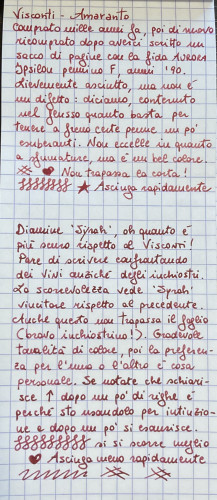 Visconti - Amaranto
Comprato mille anni fa, poi di nuovo
ricomprato dopo averci scritto un
sacco di pagine con la fida AURORA
Ipsilon pennino F, anni '90.
Lievemente asciutto, ma non è
un difetto: diciamo, contenuto
nel flusso quanto basta per
tenere a freno certe penne un po'
esuberanti. Non eccelle in quanto
a sfumature, ma è un bel colore.
Non trapassa la carta!
Asciuga rapidamente
Diamine 'Syrah', oh quanto è
più scuro rispetto al Visconti!
Pare di scrivere
dei vini anziché degli inchiostri.
La scorrevolezza vede 'Syrah'
vincitore rispetto al precedente.
Anche questo non trapassa il foglio
(bravo inchiostrino!). Gradevole
tonalità di colore, poi la preferen-
za per l'uno o l'altro è cosa
personale. Se notate che schiari-
sce ↑ dopo un po' di righe è
perché sto usandolo per intinzio-
ne e dopo un po' si esaurisce.
si si scorre meglio
Asciuga meno rapidamente